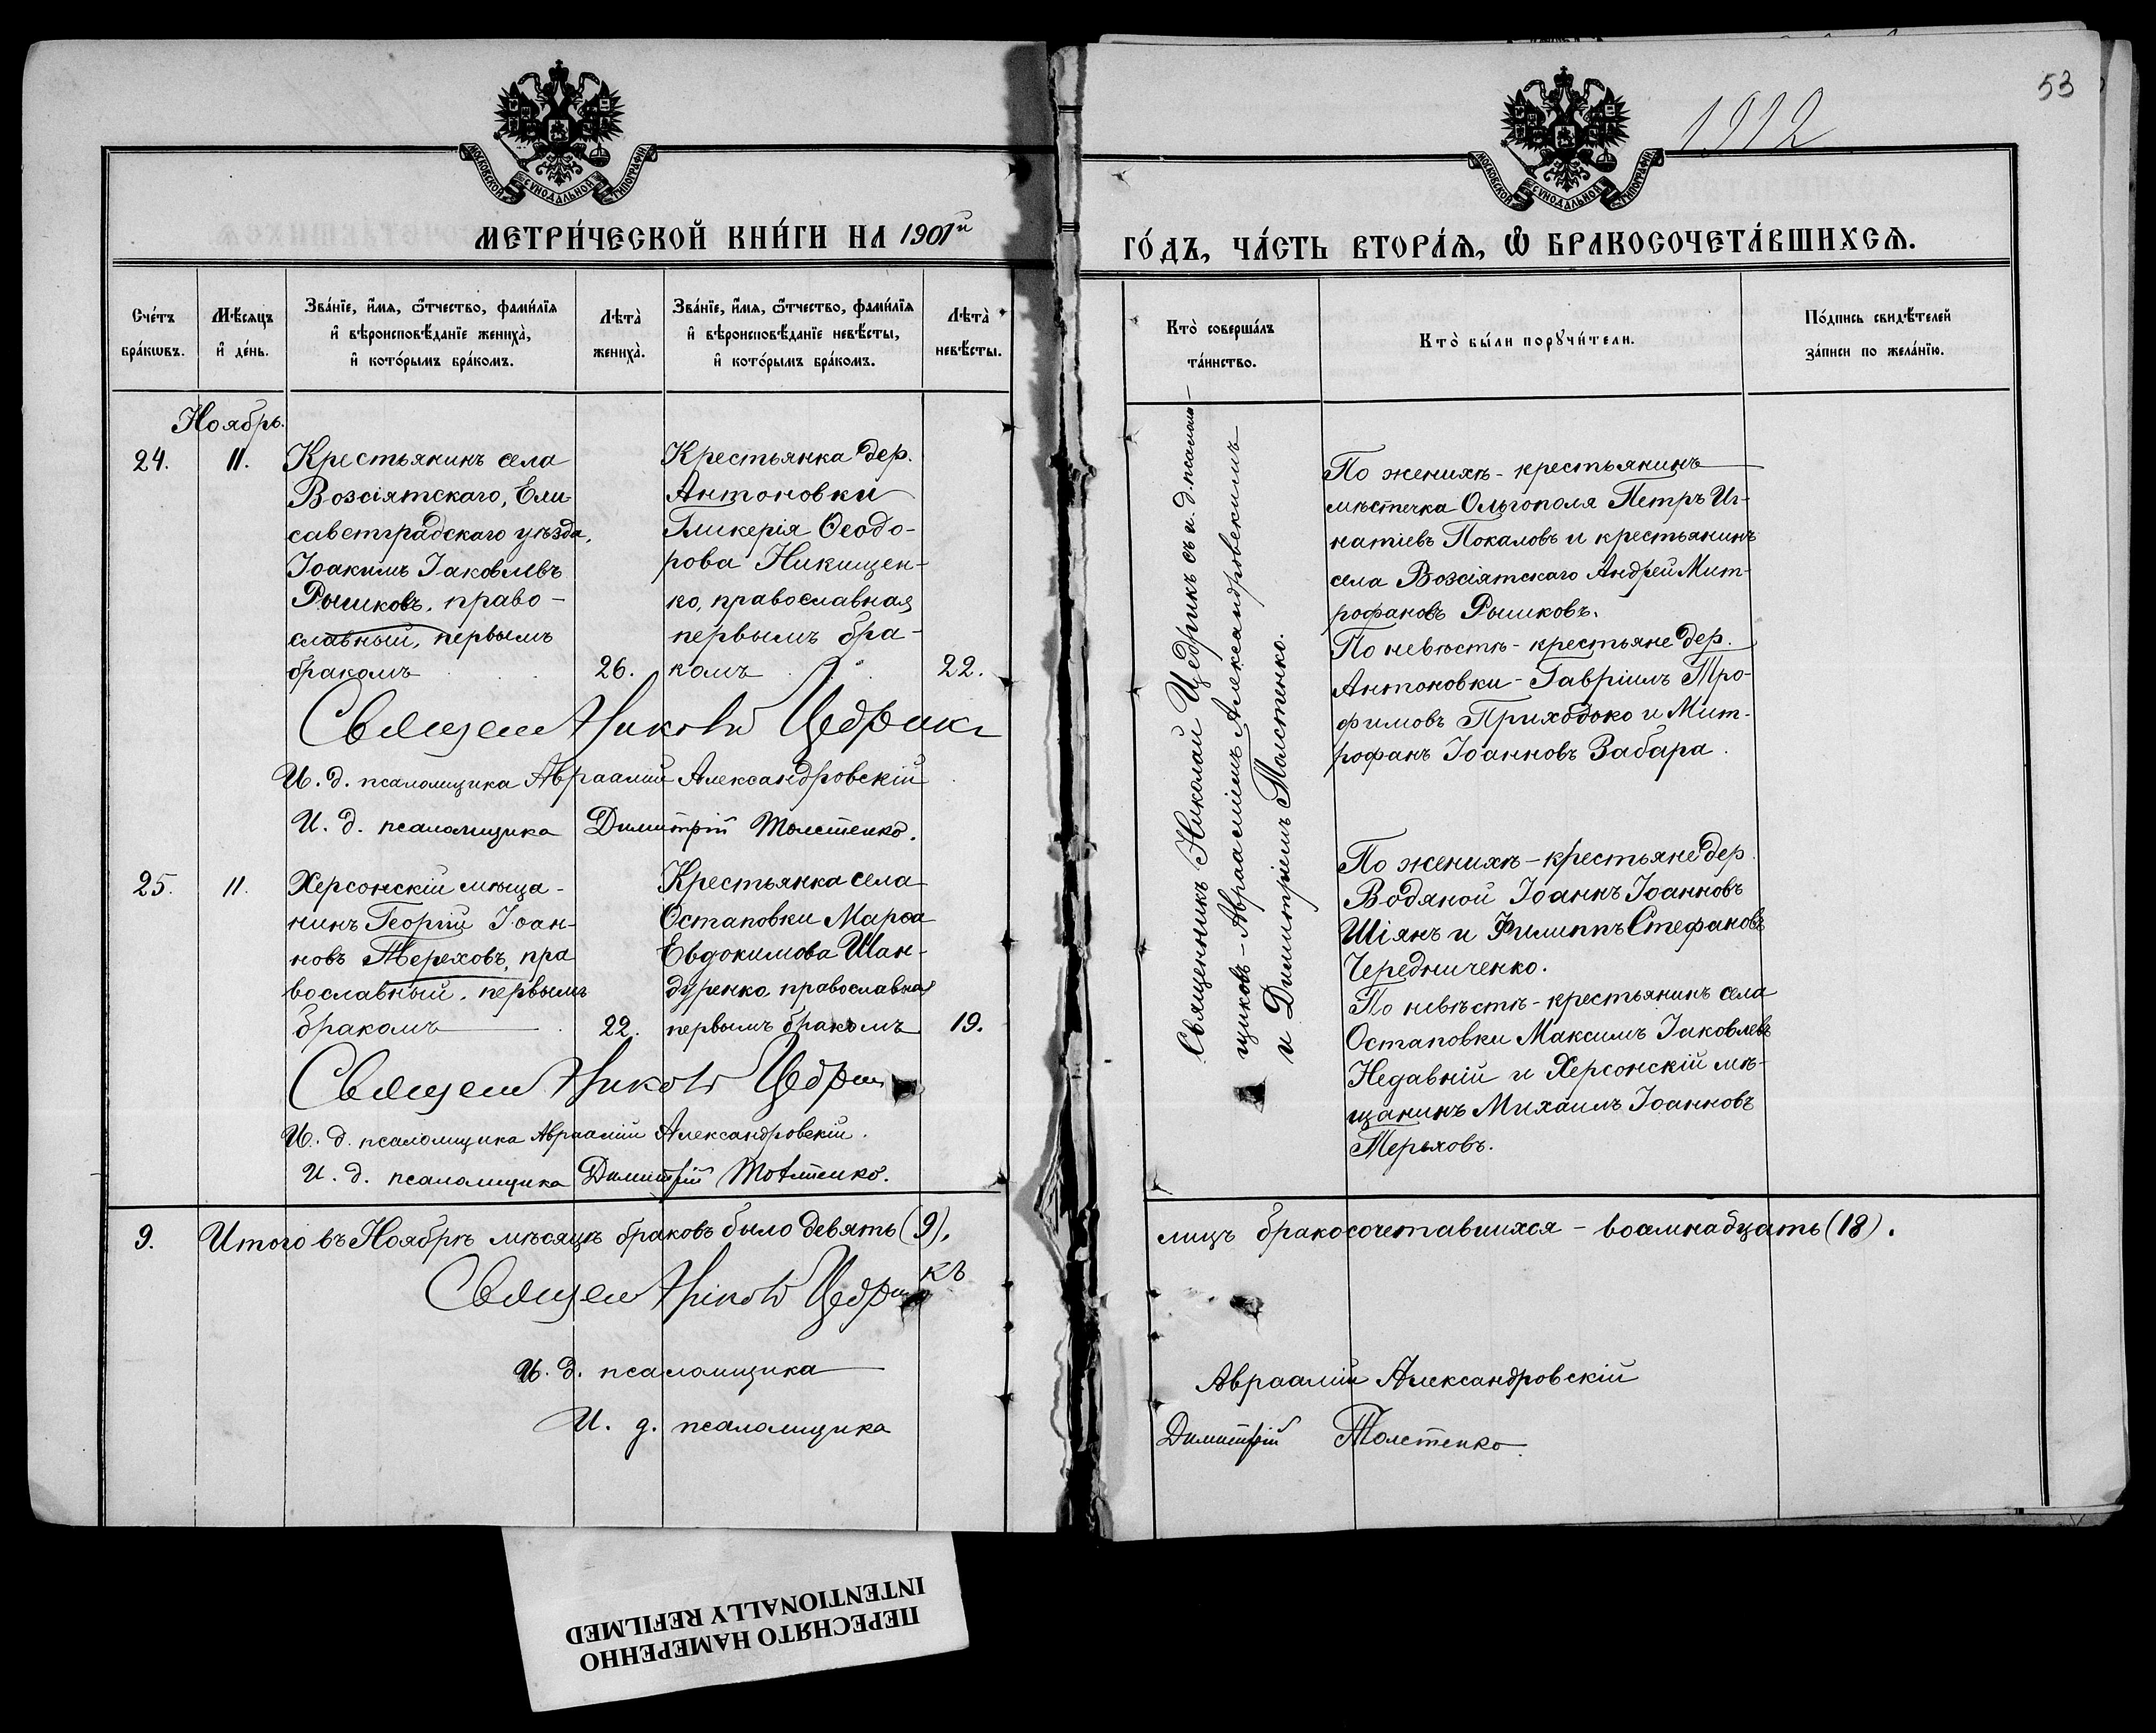 53
1912
МОСКОВСКОЙ СѴНОДАЛЬНОЙ ТИПОГРАФІИ
МОСКОВСКОЙ СѴНОДАЛЬНОЙ ТИПОГРАФІИ
МЕТРИ́ЧЕСКОЙ КНИ́ГИ НА 1901й
ГО́ДЪ, ЧА́СТЬ ВТОРА́Ѧ, Ѽ БРАКОСОЧЕТА́ВШИХСѦ.
Сче́тъ бра́кѡвъ.
Мѣ́сяцъ и҆ де́нь.
Зва́нїе, и҆́мѧ, ѻ҆́тчество, фами́лїѧ
и҆ вѣроисповѣ́данїе жениха̀,
и҆ кото́рымъ бра́комъ.
Лѣта̀ жениха̀.
Зва́нїе, и҆́мѧ, ѻ҆́тчество, фами́лїѧ
и҆ вѣроисповѣ́данїе невѣ́сты,
и҆ кото́рымъ бра́комъ.
Лѣта̀ невѣ́сты.
Кто̀ соверша́лъ та́инство.
Кто̀ бы́ли порꙋчи́тели.
По́дпись свидѣ́телей за́писи по жела́нїю.
Ноябрь.
24.
11.
Крестьянинъ села
Возсіятскаго, Ели-
саветградскаго уѣзда,
Іоакимъ Іаковлевъ
Рышковъ, право-
славный, первымъ
бракомъ
26.
Крестьянка дер.
Антоновки
Гликерія Ѳеодо-
рова Никищен-
ко, православная
первымъ бра-
комъ
22.
Священникъ Николай Цедрикъ съ и. д. псалом-
щиковъ - Авраамiемъ Александровскимъ
и Димитріемъ Толстенко.
По женихѣ - крестьянинъ
мѣстечка Ольгополя Петръ Иг-
натіевъ Покаловъ и крестьянинъ
села Возсіятскаго Андрей Мит-
рофановъ Рышковъ.
По невѣстѣ - крестьяне дер.
Антоновки - Гавріилъ Тро-
фимовъ Приходько и Мит-
рофанъ Іоанновъ Забара.
Священникъ Цедрикъ
И. д. псаломщика Авраамій Александровскій
И. д. псаломщика Димитрій Толстенко.
25.
11.
Херсонскій мѣща-
нинъ Георгій Іоан-
новъ Тереховъ, пра
вославный, первымъ
бракомъ
22.
Крестьянка села
Остаповки Марѳа
Евдокимова Шан-
дуренко православная
первымъ бракомъ
19.
По женихѣ - крестьяне дер.
Водяной Іоаннъ Іоанновъ
Шіянъ и Филиппъ Стефановъ
Чередниченко.
По невѣстѣ - крестьянинъ села
Остаповки Максимъ Іаковлевъ
Недавній и Херсонскій мѣ-
щанинъ Михаилъ Іоанновъ
Тереховъ.
Священникъ Цедри
И. д. псаломщика Авраамій Александровскій.
И. д. псаломщика Димитрій Толстенко.
9. Итого въ Ноябрѣ мѣсяцѣ браковъ было девять (9),
лицъ бракосочетавшихся - восемнадцать (18).
Священникъ Цедрикъ
И. д. псаломщика Авраамій Александровскій
И. д. псаломщика Димитрій Толстенко.
ПЕРЕСНЯТО НАМЕРЕННО
INTENTIONALLY REFILMED